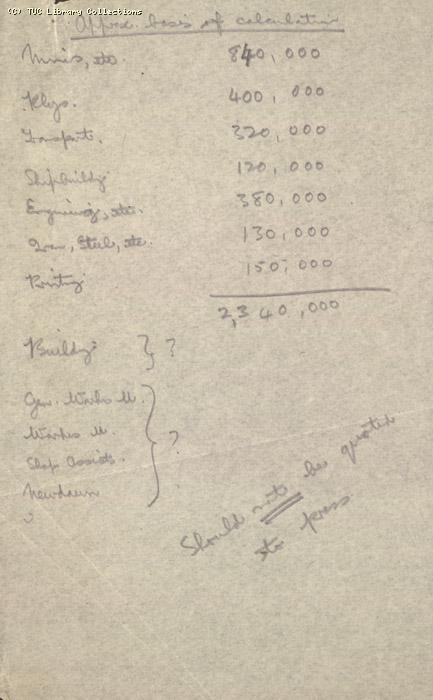 (C) TUC Library Collections
Approx. basis of calculation
Mines, etc. 840,000
Rlys. 400,000
Transport. 320,000
Shipbuildg 120,000
Engineering, etc. 380,000
Iron, Steel, etc. 130,000
Printing 150,000
2,340,000
Buildg: } ?
Gen. Works U.
Workers U. } ?
Shop Assists.
Should not be quoted
to press